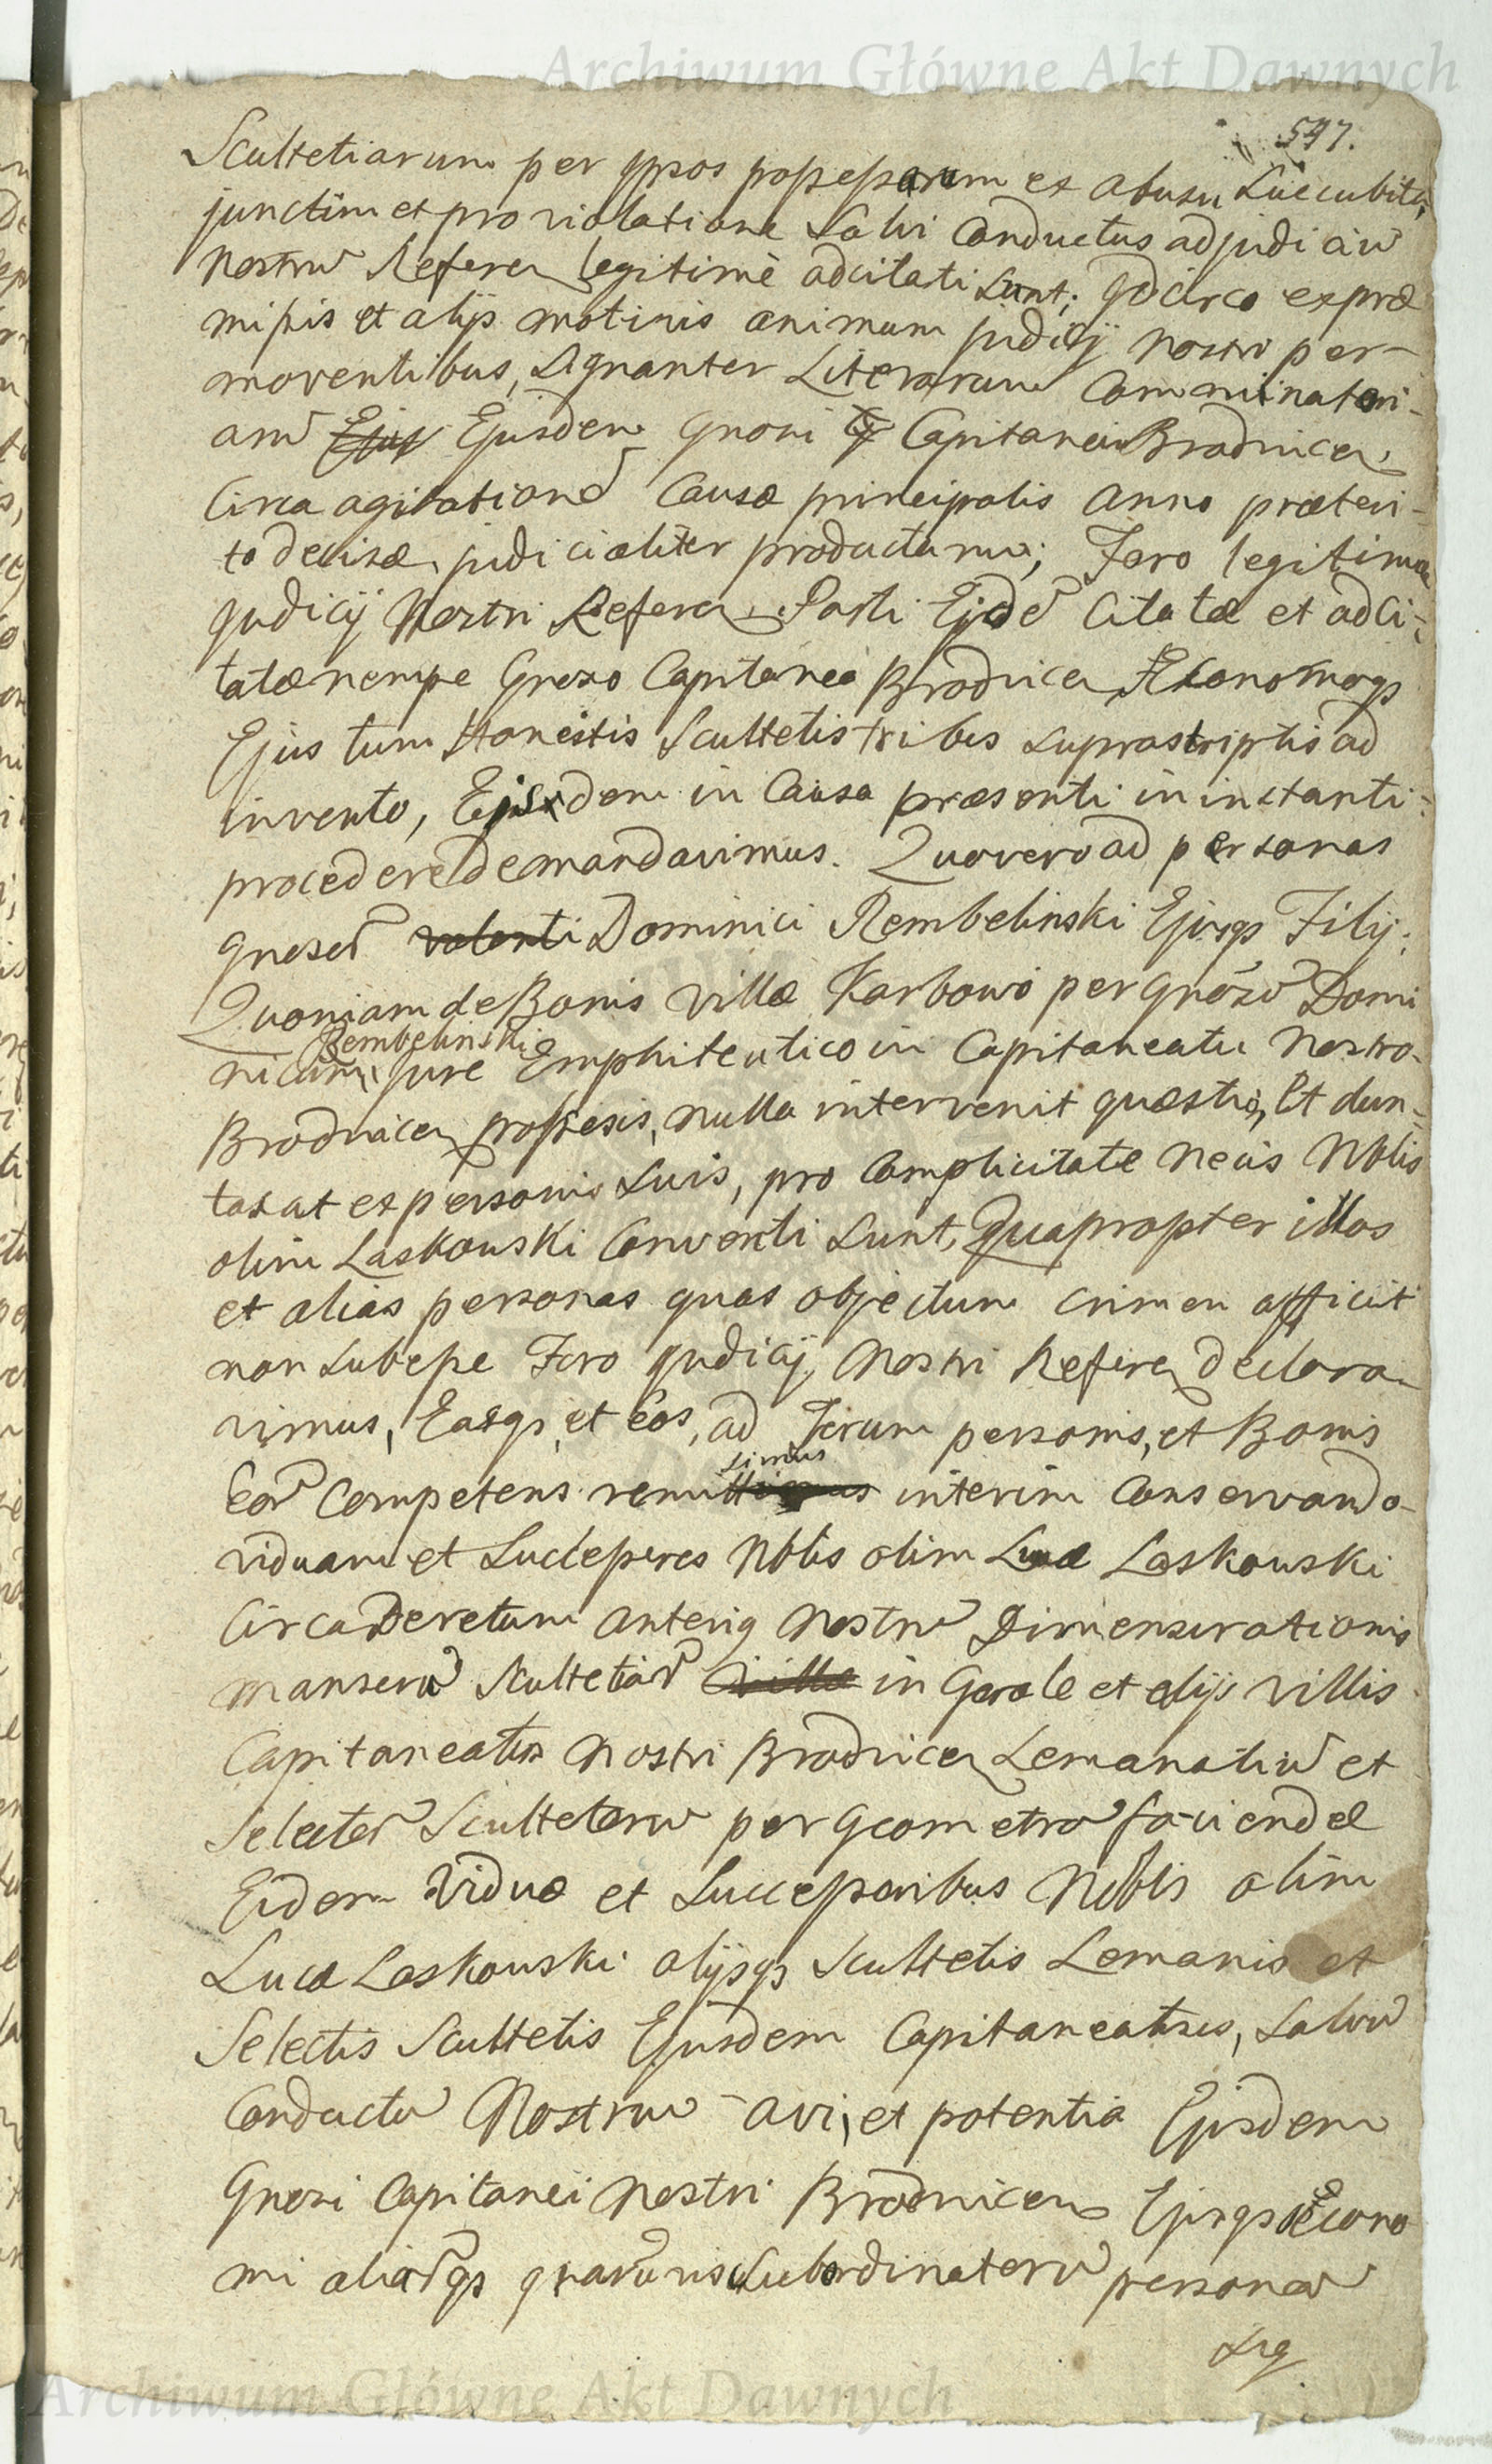 Archiwum Główne Akt Dawnych
547.
Scultetiarum per ipsos possessarum ex abusu succubita,
junctim et pro violatione Salvi Conductus ad judiciũ
nostrũ Referen legitimè adcitati sunt; Qđcirco ex præ
missis et alijs motivis animum judicij nostri per-
moventibus, signanter Literarum Comminatori-
arũ Ejus Ejusdem Gnosi Capitanei Brodnicen
Circa agitationẽ Causæ principalis Anno præteri-
to decisæ, judicialiter productarũ; Foro legitimo
Judicij Nostri Referen Parti Ejdẽ Citatæ et adCi-
tatæ nempe Gnoso Capitaneo Brodnicen, Æconomoqs
Ejus tum Honestis Scultetis tribus suprascriptis ad
invento, Ejusdem in Causa præsenti in instanti
procedere demandavimus. Quovero ad personas
Gnosor̃ valenti Dominici Rembelinski Ejusqs Filij.
Quoniam de Bonis Villæ Karbowo per Gnosũ Domi
Rembelinski
nicum, jure Emphiteutico in Capitaneatu Nostro
Brodnicen possessis, nulla intervenit quæstio, Et dun-
taxat ex personis suis, pro Complicitate necis Nblis
olim Laskowski Conventi sunt, Quapropter illos
et alias personas quas objectum crimen afficit
non subesse Foro Judicij Nostri Referen declara-
vimus, Easqs, et Eos, ad Forum personis, et Bonis
simus
Eor̃ Competens remittimus interim Conservando
viduam et Successores Nblis olim Lucæ Laskowski
Circa Decretum anterig Nostrũ Dimensurationis
mansorũ Scultetiar̃ Villæ in Gorale et alijs villis
Capitaneatus Nostri Brodnicen Lemanoliũ et
Selector̃ Scultetorũ per Geometrã faciendæ
Eidem Viduæ et Successoribus Nobls olim
Lucæ Laskowski alijsqs Scultetis Lemanis et
Selectis Scultetis Ejusdem Capitaneatus, Salvũ
Conductũ Nostrum a vi, et potentia Ejusdem
Gnosi Capitanei Nostri Brodnicen Ejusqs Æcono
mi aliar̃qs quarũvis Subordinatarũ personar̃
sig
Archiwum Główne Akt Dawnych